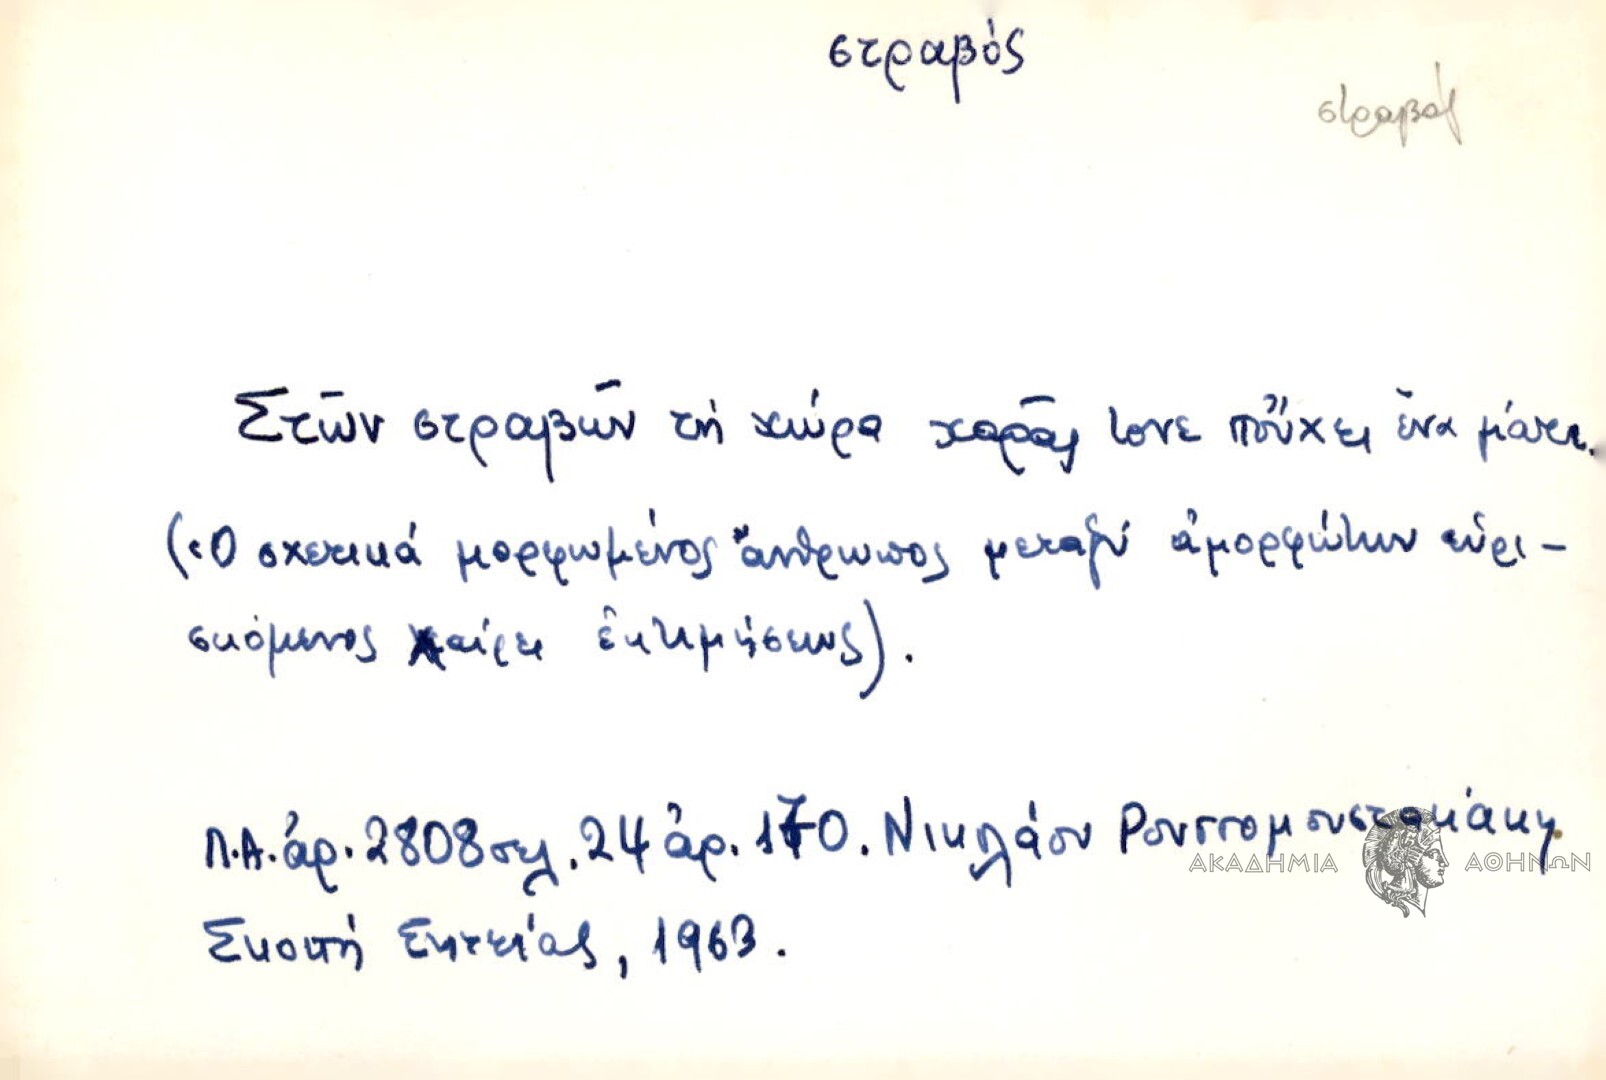 στραβός
στραβός
Στῶν στραβῶν τή χώρα χαρᾶς τονε ποὔχει ἕνα μάτι.
(Ὁ σχετικά μορφωμένος ἄνθρωπος μεταξύ ἀμορφώτων εὑρι-
σκόμενος χαίρει ἐκτιμήσεως).
Λ.Α. ἀρ. 2808 σελ. 24 ἀρ. 170. Νικολάου Ρουσσομουστακάκη
ΑΚΑΔΗΜΙΑ ΑΘΗΝΩΝ
Σκοπή Σητείας, 1963.